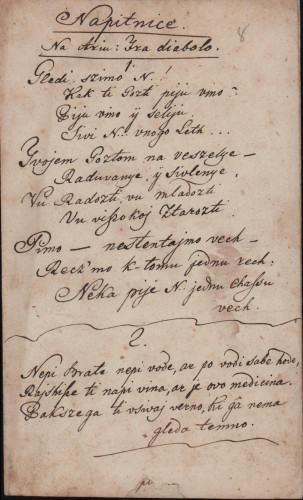 Napitnice.
8
Na Ariu: Fra diabolo.
1.
Gledi szimo N.!
Kak ti Gozti piju vmo?
Piju vmo ÿ seliju
Sivi N. vnogo Leth...
Tvojem Goztom na veszelje –
Raduvanje, ÿ Sivlenje,
Vu Radozti, vu mladozti
Vu viszokoj Ztarozti.
Pimo – nestentajmo vech –
Recz'mo k-tomu jednu rech:
Neka pije N. jednu chassu
vech.
2.
Nepi Brate nepi vode, ar po vodi sabe hode,
Rajshshe ti napi vina, ar je ovo medicina.
Bakszega ti vsivaj verno, ki ga nema
gleda temno.